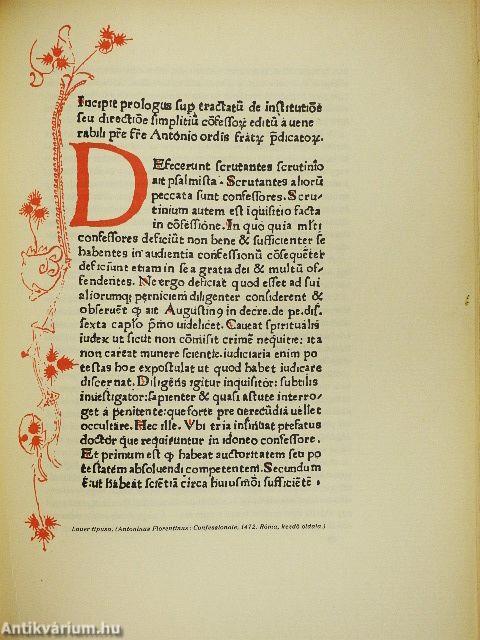 Incipit prologus sup tractatū de institutiōe
seu directiōe simplitiū cōfessoꝝ editū a vene
rabili pr̄e fr̄e Antōnio ordīs fratꝝ p̄dicatoꝝ.
DEfecerunt scrutantes scrutinio
ait psalmista. Scrutantes aliorū
peccata sunt confessores. Scru-
tinium autem est īquisitio facta
in cōfessiōne. In quo quia ml̄ti
confessores deficiūt non bene & sufficienter se
habentes in audientia confessionū cōsequēter
deficiunt etiam in se a gratia dei & multū of-
fendentes. Ne ergo deficiāt quod esset ad sui
aliorumqꝫ perniciem diligenter considerent &
obseruēt qđ ait Augustinꝰ in decre. de pe. dis.
sexta caplo pͥmo videlicet. Caueat spiritualis
iudex ut sicut non cōmisit crimē nequitie: ita
non careat munere scientie. iudiciaria enim po
testas hoc expostulat ut quod habet iudicare
discernat. Diligēs igitur inquisitor: subtilis
inuestigator: sapienter & quasi astute interro-
get a penitente: que forte pre verecūdia uellet
occultare. Hec ille. Vbi tria insinuat prefatus
doctor que requiruntur in idoneo confessore.
Et primum est qđ habeat auctoritatem seu po
testatem absoluendi competentem. Secundum
ē ut habeat sciētiā circa huiusmōi sufficiētē.
Lauer tipusa. (Antoninus Florentinus: Confessionale, 1472. Róma, kezdő oldala.)
Antikvárium.hu